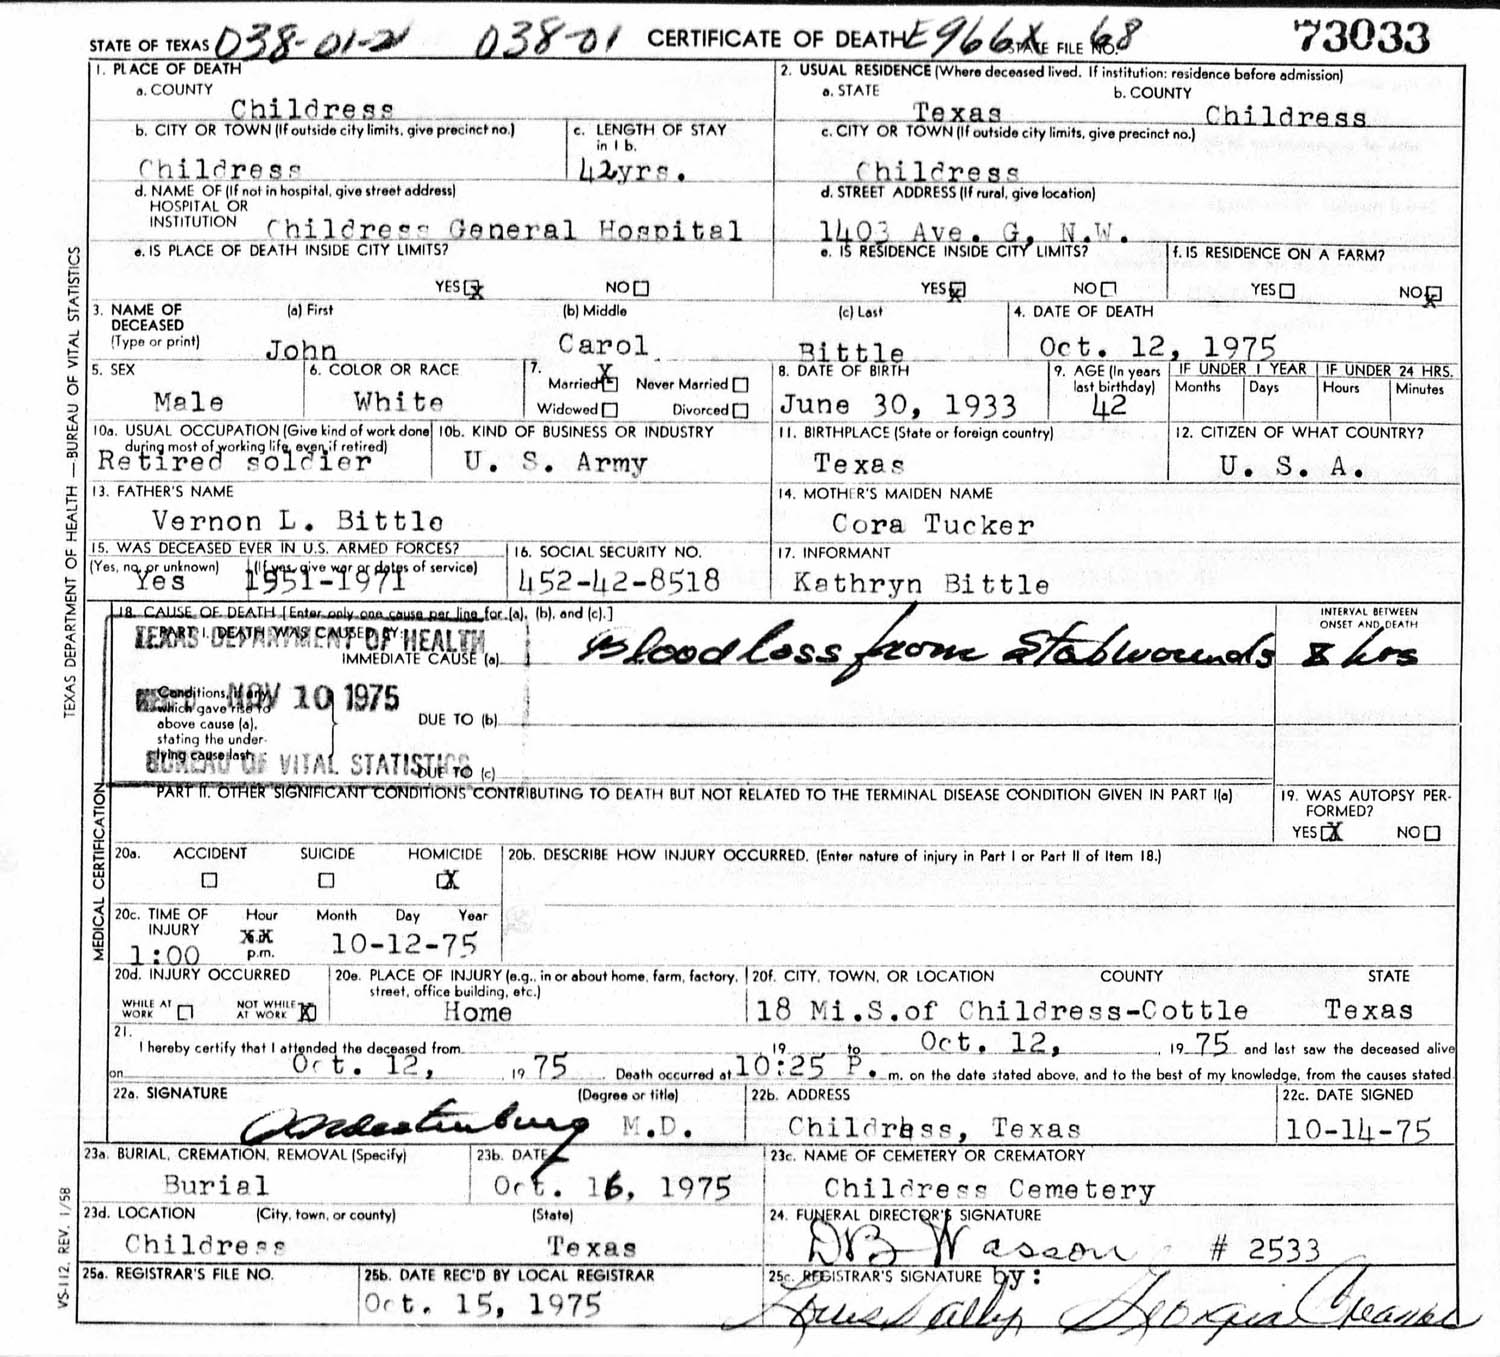 STATE OF TEXAS 038-01-21 038-01 CERTIFICATE OF DEATH E966X STATE FILE NO. 68 73033
1. PLACE OF DEATH
a. COUNTY
Childress
2. USUAL RESIDENCE (Where deceased lived. If institution: residence before admission)
a. STATE b. COUNTY
Texas Childress
b. CITY OR TOWN (If outside city limits, give precinct no.)
Childress
c. LENGTH OF STAY in 1 b.
42yrs.
c. CITY OR TOWN (If outside city limits, give precinct no.)
Childress
d. NAME OF (If not in hospital, give street address)
HOSPITAL OR
INSTITUTION Childress General Hospital
d. STREET ADDRESS (If rural, give location)
1403 Ave. G, N.W.
e. IS PLACE OF DEATH INSIDE CITY LIMITS?
YES X NO
e. IS RESIDENCE INSIDE CITY LIMITS?
YES X NO
f. IS RESIDENCE ON A FARM?
YES NO X
3. NAME OF DECEASED (Type or print)
(a) First (b) Middle (c) Last
John Carol Bittle
4. DATE OF DEATH
Oct. 12, 1975
5. SEX
Male
6. COLOR OR RACE
White
7. Married X Never Married
Widowed Divorced
8. DATE OF BIRTH
June 30, 1933
9. AGE (In years last birthday)
42
IF UNDER 1 YEAR IF UNDER 24 HRS.
Months Days Hours Minutes
10a. USUAL OCCUPATION (Give kind of work done during most of working life, even if retired)
Retired soldier
10b. KIND OF BUSINESS OR INDUSTRY
U. S. Army
11. BIRTHPLACE (State or foreign country)
Texas
12. CITIZEN OF WHAT COUNTRY?
U. S. A.
13. FATHER'S NAME
Vernon L. Bittle
14. MOTHER'S MAIDEN NAME
Cora Tucker
15. WAS DECEASED EVER IN U.S. ARMED FORCES?
(Yes, no, or unknown) (If yes, give war or dates of service)
Yes 1951-1971
16. SOCIAL SECURITY NO.
452-42-8518
17. INFORMANT
Kathryn Bittle
18. CAUSE OF DEATH [Enter only one cause per line for (a), (b), and (c).]
INTERVAL BETWEEN ONSET AND DEATH
PART I. DEATH WAS CAUSED BY:
TEXAS DEPARTMENT OF HEALTH
IMMEDIATE CAUSE (a) Blood loss from stab wounds 8 hrs
NOV 10 1975
Conditions, if any, which gave rise to above cause (a), stating the underlying cause last.
DUE TO (b)
BUREAU OF VITAL STATISTICS
DUE TO (c)
PART II. OTHER SIGNIFICANT CONDITIONS CONTRIBUTING TO DEATH BUT NOT RELATED TO THE TERMINAL DISEASE CONDITION GIVEN IN PART I(a)
19. WAS AUTOPSY PERFORMED?
YES X NO
20a. ACCIDENT SUICIDE HOMICIDE
X
20b. DESCRIBE HOW INJURY OCCURRED. (Enter nature of injury in Part I or Part II of Item 18.)
20c. TIME OF INJURY
Hour Month Day Year
1:00 p.m. 10-12-75
20d. INJURY OCCURRED
WHILE AT WORK NOT WHILE AT WORK X
20e. PLACE OF INJURY (e.g., in or about home, farm, factory, street, office building, etc.)
Home
20f. CITY, TOWN, OR LOCATION COUNTY STATE
18 Mi.S.of Childress-Cottle Texas
21.
I hereby certify that I attended the deceased from 19 to Oct. 12, 19 75 and last saw the deceased alive
on Oct. 12, 19 75 Death occurred at 10:25 P. m. on the date stated above, and to the best of my knowledge, from the causes stated.
22a. SIGNATURE (Degree or title)
M.D.
22b. ADDRESS
Childress, Texas
22c. DATE SIGNED
10-14-75
23a. BURIAL, CREMATION, REMOVAL (Specify)
Burial
23b. DATE
Oct. 16, 1975
23c. NAME OF CEMETERY OR CREMATORY
Childress Cemetery
23d. LOCATION (City, town, or county) (State)
Childress Texas
24. FUNERAL DIRECTOR'S SIGNATURE
DB Wasson # 2533
25a. REGISTRAR'S FILE NO.
25b. DATE REC'D BY LOCAL REGISTRAR
Oct. 15, 1975
25c. REGISTRAR'S SIGNATURE by:
Georgia
TEXAS DEPARTMENT OF HEALTH — BUREAU OF VITAL STATISTICS
MEDICAL CERTIFICATION
VS-112, REV. 1/58